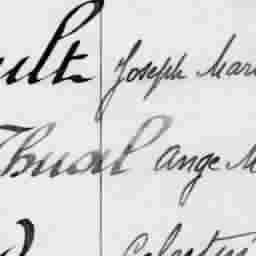 ult Joseph Mari
Thual Ange M
Célestin